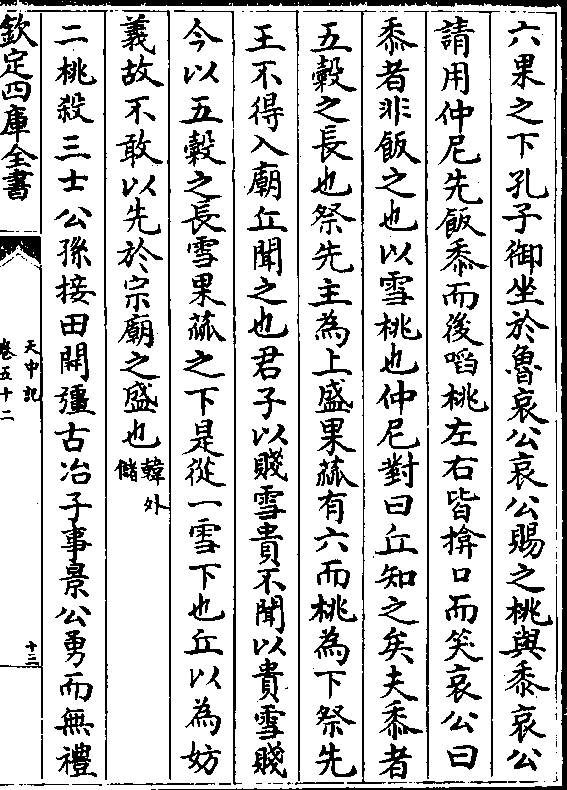 六果之下孔子御坐於魯哀公哀公賜之桃與黍哀公
請用仲尼先飯黍而後啗桃左右皆揜口而笑哀公曰
黍者非飯之也以雪桃也仲尼對曰丘知之矣夫黍者
五穀之長也祭先主為上盛果蓏有六而桃為下祭先
王不得入廟丘聞之也君子以賤雪貴不聞以貴雪賤
今以五穀之長雪果蓏之下是從一雪下也丘以為妨
義故不敢以先於宗廟之盛也韓外
儲
二桃殺三士公孫接田開彊古冶子事景公勇而無禮
欽定四庫全書
天中記
卷五十二
十三